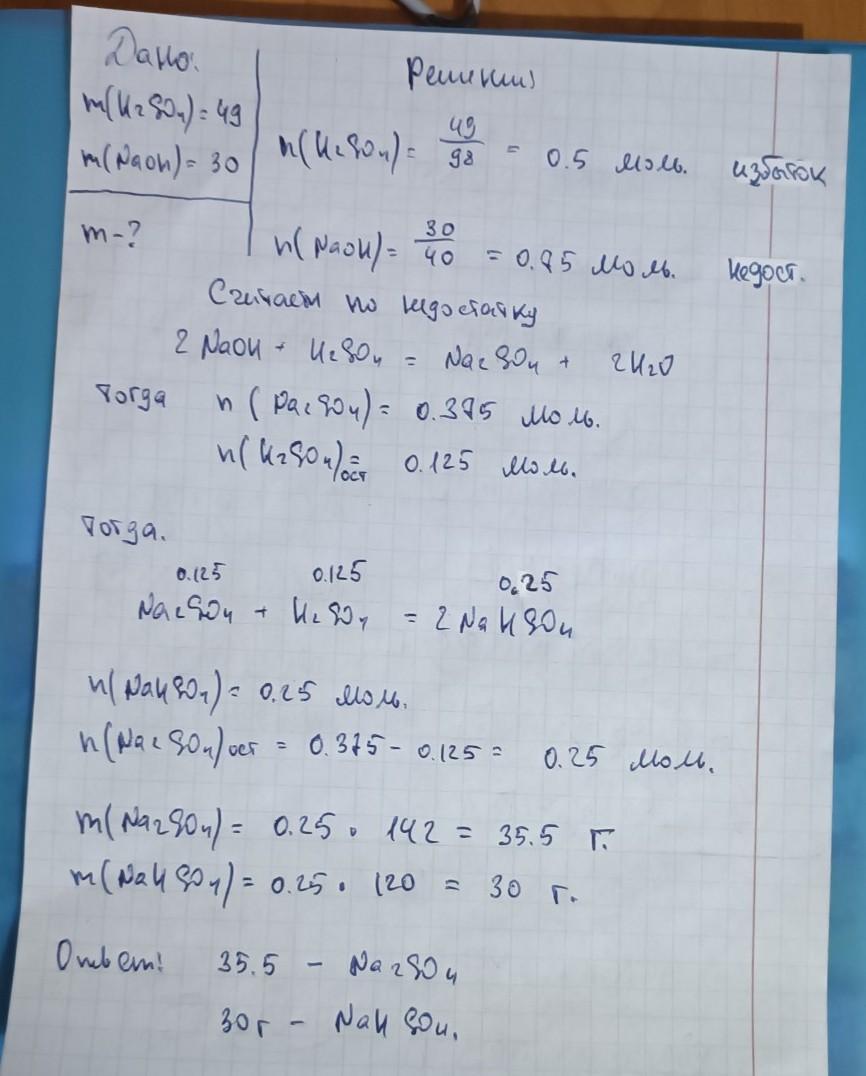 Дано:
m(H2SO4) = 49
m(NaOH) = 30
m-?
Решение:
n(H2SO4) = 49/98 = 0.5 моль. избыток
n(NaOH) = 30/40 = 0.75 моль. недост.
Считаем по недостатку
2 NaOH + H2SO4 = Na2SO4 + 2H2O
Тогда n(Na2SO4) = 0.375 моль.
n(H2SO4)ост = 0.125 моль.
Тогда.
0.125 0.125 0.25
Na2SO4 + H2SO4 = 2 NaHSO4
n(NaHSO4) = 0.25 моль.
n(Na2SO4)ост = 0.375 - 0.125 = 0.25 моль.
m(Na2SO4) = 0.25 · 142 = 35.5 г.
m(NaHSO4) = 0.25 · 120 = 30 г.
Ответ: 35.5 - Na2SO4
30г - NaHSO4.